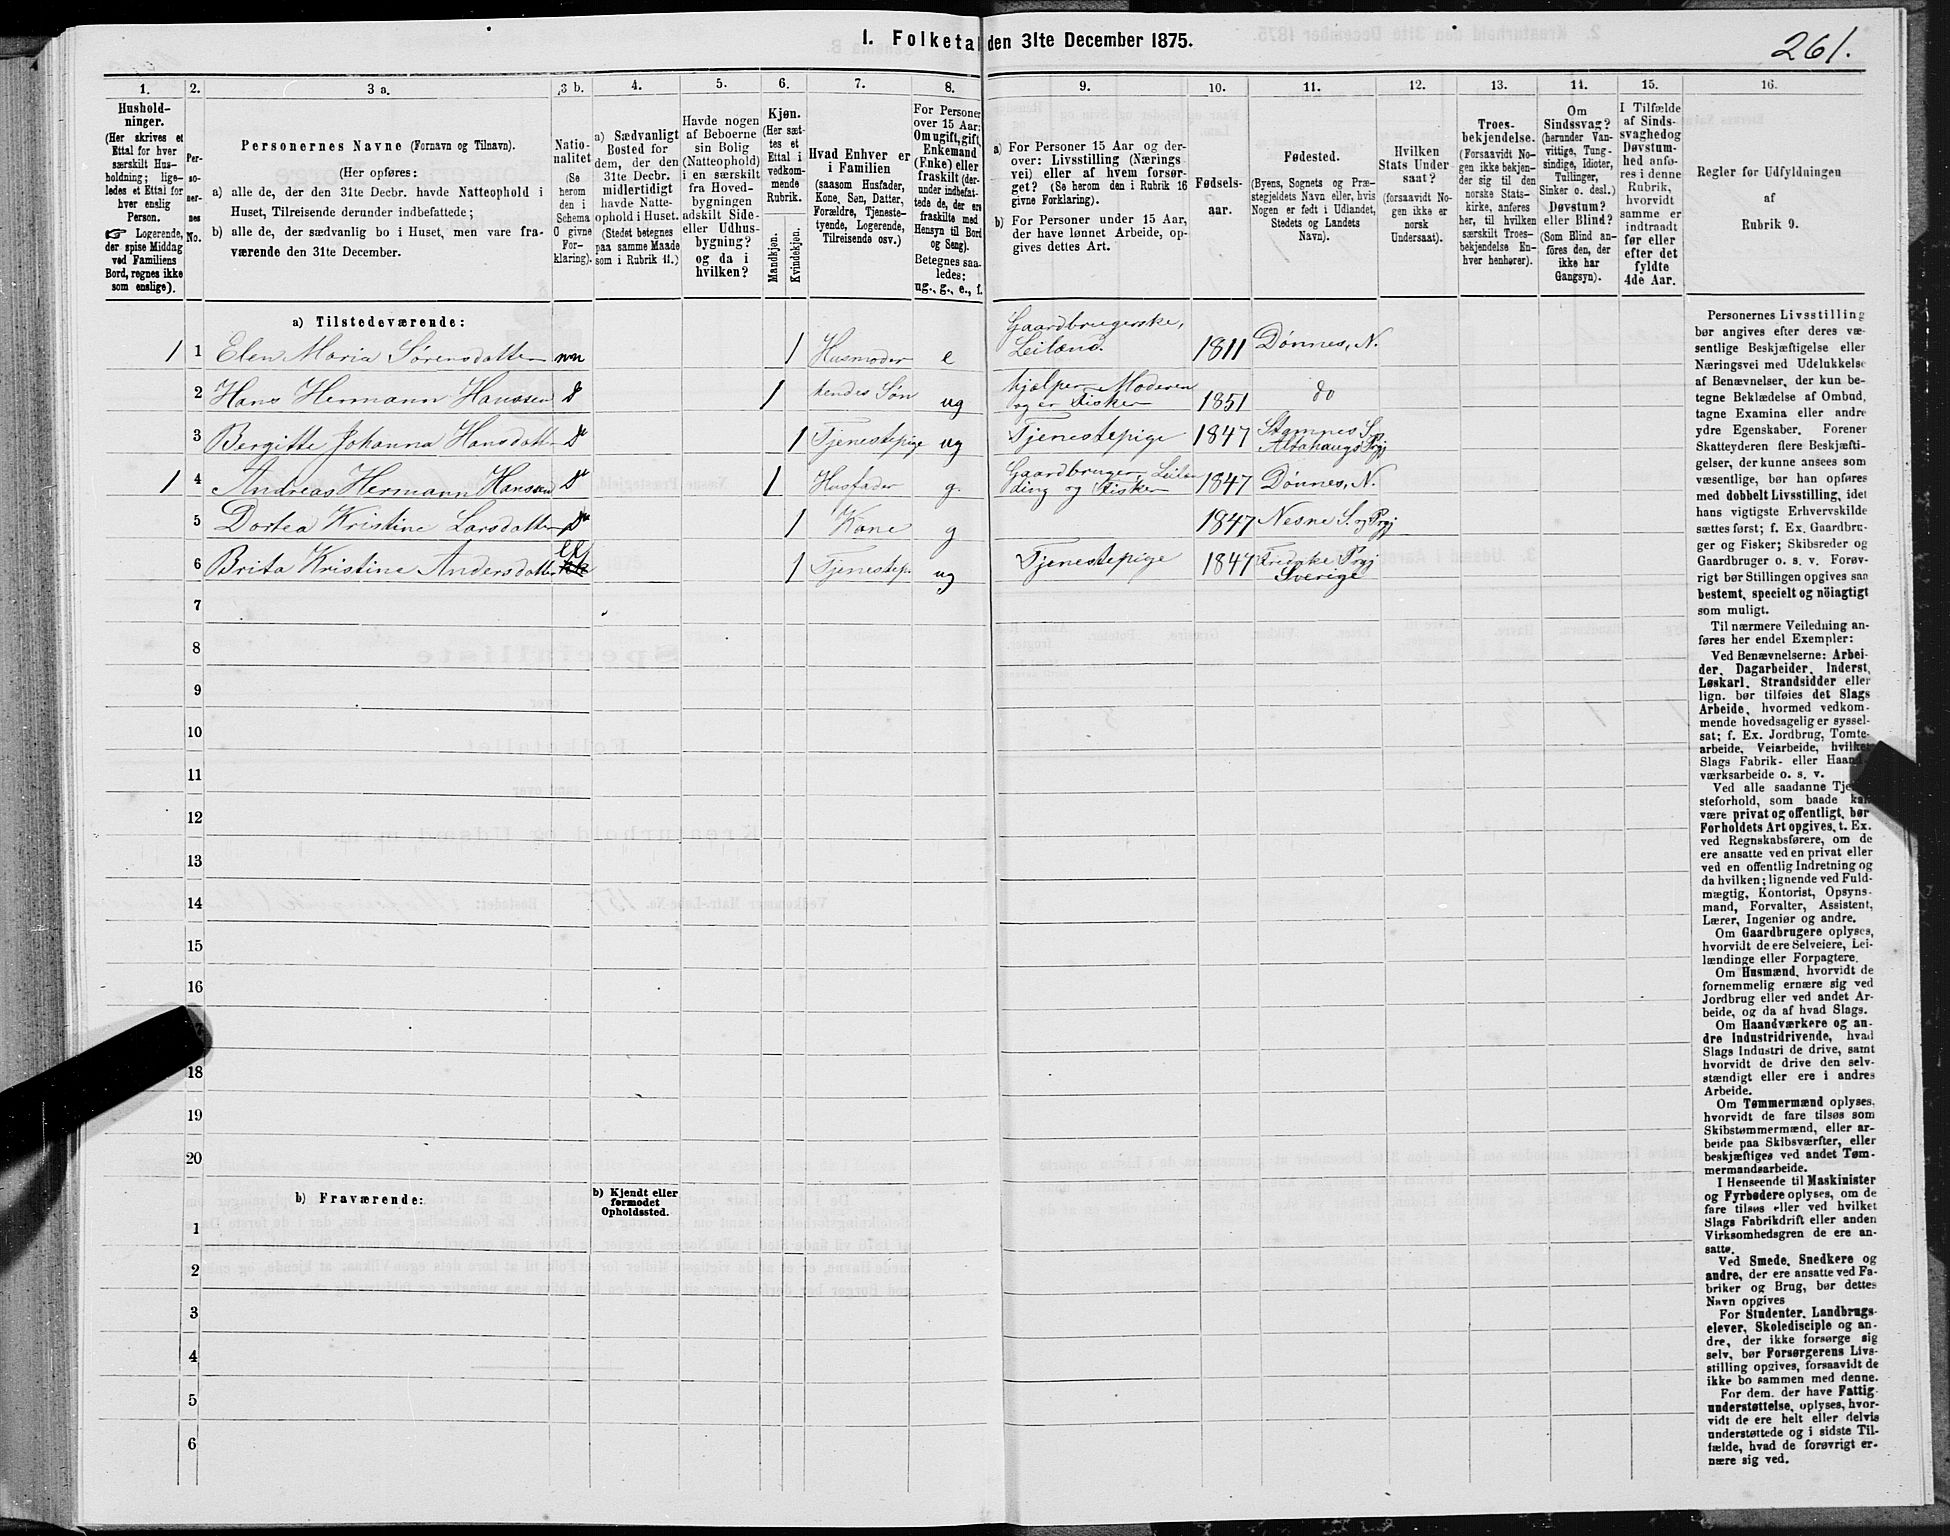 I. Folketal den 31te December 1875.
261.
1. 2. 3 a. 3 b. 4. 5. 6. 7. 8. 9. 10. 11. 12. 13. 14. 15. 16.
Hushold-
ninger.
(Her skrives et
Ettal for hver
særskilt Hus-
holdning; lige-
ledes et Ettal for
hver enslig
Person.
☞ Logerende,
der spise Middag
ved Familiens
Bord, regnes ikke
som enslige).
Per-
so-
ner-
nes
No.
Personernes Navne (Fornavn og Tilnavn).
(Her opføres:
a) alle de, der den 31te Decbr. havde Natteophold i
Huset, Tilreisende derunder indbefattede;
b) alle de, der sædvanlig bo i Huset, men vare fra-
værende den 31te December.
Natio-
nalitet
(Se
herom
den i
Schema
O givne
For-
klaring).
a) Sædvanligt
Bosted for
dem, der den
31te Decbr.
midlertidigt
havde Natte-
ophold i Huset.
(Stedet betegnes
paa samme Maade
som i Rubrik 11.)
Havde nogen
af Beboerne
sin Bolig
(Natteophold)
i en særskilt
fra Hoved-
bygningen
adskilt Side-
eller Udhus-
bygning?
og da i
hvilken?
Kjøn.
(Her sæt-
tes et
Ettal i
vedkom-
mende
Rubrik.
Mandkjøn.
Kvindekjøn.
Hvad Enhver er
i Familien
(saasom Husfader,
Kone, Søn, Datter,
Forældre, Tjeneste-
tyende, Logerende,
Tilreisende osv.)
For Personer
over 15 Aar:
Om ugift, gift,
Enkemand
(Enke) eller
fraskilt (der-
under indbefat-
tede de, der ere
fraskilte med
Hensyn til Bord
og Seng).
Betegnes saa-
ledes:
ug., g., e., f.
a) For Personer 15 Aar og der-
over: Livsstilling (Nærings-
vei) eller af hvem forsør-
get? (Se herom den i Rubrik 16
givne Forklaring).
b) For Personer under 15 Aar,
der have lønnet Arbeide, op-
gives dettes Art.
Fødsels-
aar.
Fødested.
(Byens, Sognets og Præ-
stegjeldets Navn eller, hvis
Nogen er født i Udlandet,
Stedets og Landets
Navn).
Hvilken
Stats Under-
saat?
(forsaavidt No-
gen ikke er
norsk
Undersaat).
Troes-
bekjendelse.
(Forsaavidt No-
gen ikke bekjen-
der sig til den
norske Stats-
kirke, anføres
her, til hvilken
særskilt Troes-
bekjendelse En-
hver henhører).
Om
Sindssvag?
(herunder Van-
vittige, Tung-
sindige, Idioter,
Tullinger,
Sinker o. desl.)
Døvstum?
eller Blind?
(Som Blind an-
føres den, der
ikke har
Gangsyn).
I Tilfælde
af Sinds-
svaghed og
Døvstum-
hed anfø-
res i denne
Rubrik,
hvorvidt
samme er
indtraadt
før eller
efter det
fyldte
4de Aar.
Regler for Udfyldningen
af
Rubrik 9.
a) Tilstedeværende:
1 1 Elen Maria Sørensdatter nn 1 Husmoder e Gaardbrugerske, Leiland. 1811 Dønnes, N.
2 Hans Hermann Hanssen d 1 hendes Søn ug hjælper Moderen og er Fisker 1851 do
3 Bergitte Johanna Hansdatter do 1 Tjenestepige ug Tjenestepige 1847 Stamnes S. Alstahaugs Prgj
1 4 Andreas Hermann Hanssen do 1 Husfader g. Gaardbruger, Leilænding og Fisker 1847 Dønnes, N.
5 Dortea Kristine Larsdatter do 1 Kone g 1847 Nesne S. og Prgj
6 Brita Kristine Andersdatter 1 Tjenestep. ug Tjenestepige 1847 Prgj Sverige
7
8
9
10
11
12
13
14
15
16
18
19
20
b) Fraværende:
b) Kjendt eller
formodet
Opholdssted.
1
2
3
4
5
6
Personernes Livsstilling
bør angives efter deres væ-
sentlige Beskjæftigelse eller
Næringsvei med Udelukkelse
af Benævnelser, der kun be-
tegne Beklædelse af Ombud,
tagne Examina eller andre
ydre Egenskaber. Forener
Skatteyderen flere Beskjæfti-
gelser, der kunne ansees som
væsentlige, bør han opføres
med dobbelt Livsstilling, idet
hans vigtigste Erhvervskilde
sættes først; f. Ex. Gaardbru-
ger og Fisker; Skibsreder og
Gaardbruger o. s. v. Forøv-
rigt bør Stillingen opgives saa
bestemt, specielt og nöiagtigt
som muligt.
Til nærmere Veiledning an-
føres her endel Exempler:
Ved Benævnelserne: Arbei-
der, Dagarbeider, Inderst,
Løskarl, Strandsidder eller
lign. bør tilføies det Slags
Arbeide, hvormed vedkom-
mende hovedsagelig er syssel-
sat; f. Ex. Jordbrug, Tomte-
arbeide, Veiarbeide, hvilket
Slags Fabrik- eller Haand-
værksarbeide o. s. v.
Ved alle saadanne Tje-
steforhold, som baade kan
være privat og offentligt, bør
Forholdets Art opgives, t. Ex.
ved Regnskabsførere, om de
ere ansatte ved en privat eller
ved en offentlig Indretning og
da hvilken; lignende ved Fuld-
mægtig, Kontorist, Opsyns-
mand, Forvalter, Assistent,
Lærer, Ingeniør og andre.
Om Gaardbrugere oplyses,
hvorvidt de ere Selveiere, Lei-
lændinge eller Forpagtere.
Om Husmænd, hvorvidt de
fornemmelig ernære sig ved
Jordbrug eller ved andet Ar-
beide, og da af hvad Slags.
Om Haandværkere og an-
dre Industridrivende, hvad
Slags Industri de drive, samt
hvorvidt de drive den selv-
stændigt eller ere i andres
Arbeide.
Om Tømmermænd oplyses,
hvorvidt de fare tilsøs som
Skibstømmermænd, eller ar-
beide paa Skibsværfter, eller
beskjæftiges ved andet Tøm-
mermandsarbeide.
I Henseende til Maskinister
og Fyrbødere oplyses, om de
fare tilsøs eller ved hvilket
Slags Fabrikdrift eller anden
Virksomhedsgren de ere an-
satte.
Ved Smede, Snedkere og
andre, der ere ansatte ved Fa-
briker og Brug, bør dettes
Navn opgives
For Studenter, Landbrugs-
elever, Skoledisciple og an-
dre, der ikke forsørge sig
selv, bør Forsørgerens Livs-
stilling opgives, forsaavidt de
ikke bo sammen med denne.
For dem, der have Fattig-
understøttelse, oplyses, hvor-
vidt de ere helt eller delvis
understøttede og i sidste Til-
fælde, hvad de forøvrigt er-
nære sig ved.